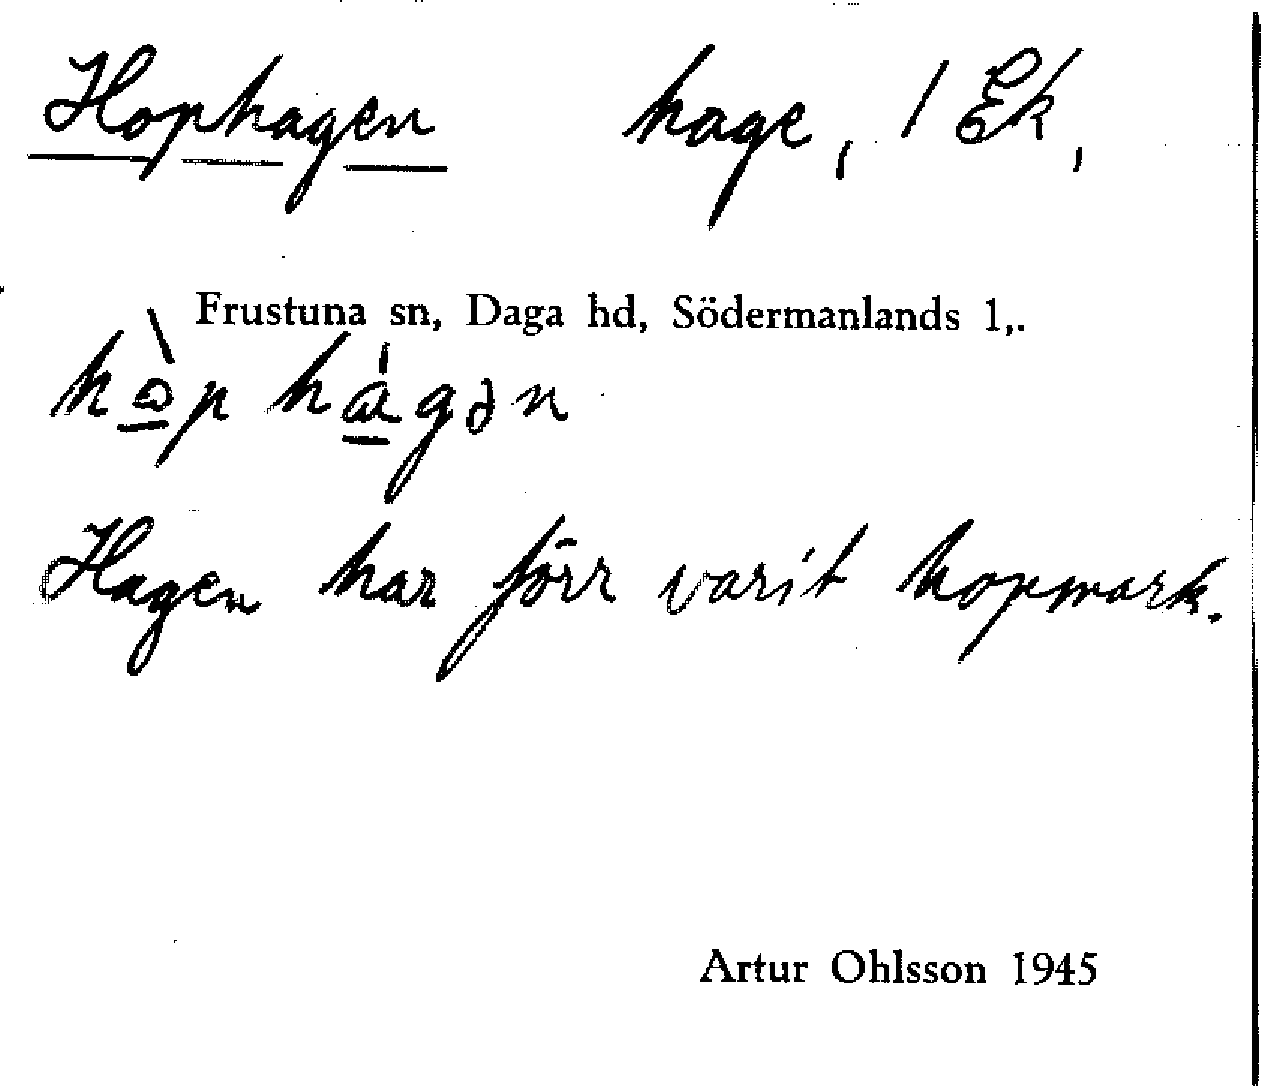 Hophagen hage, 1 Ek,
Frustuna sn, Daga hd, Södermanlands l,.
hò̱p há̱gən
Hagen har förr varit hopmark.
Artur Ohlsson 1945